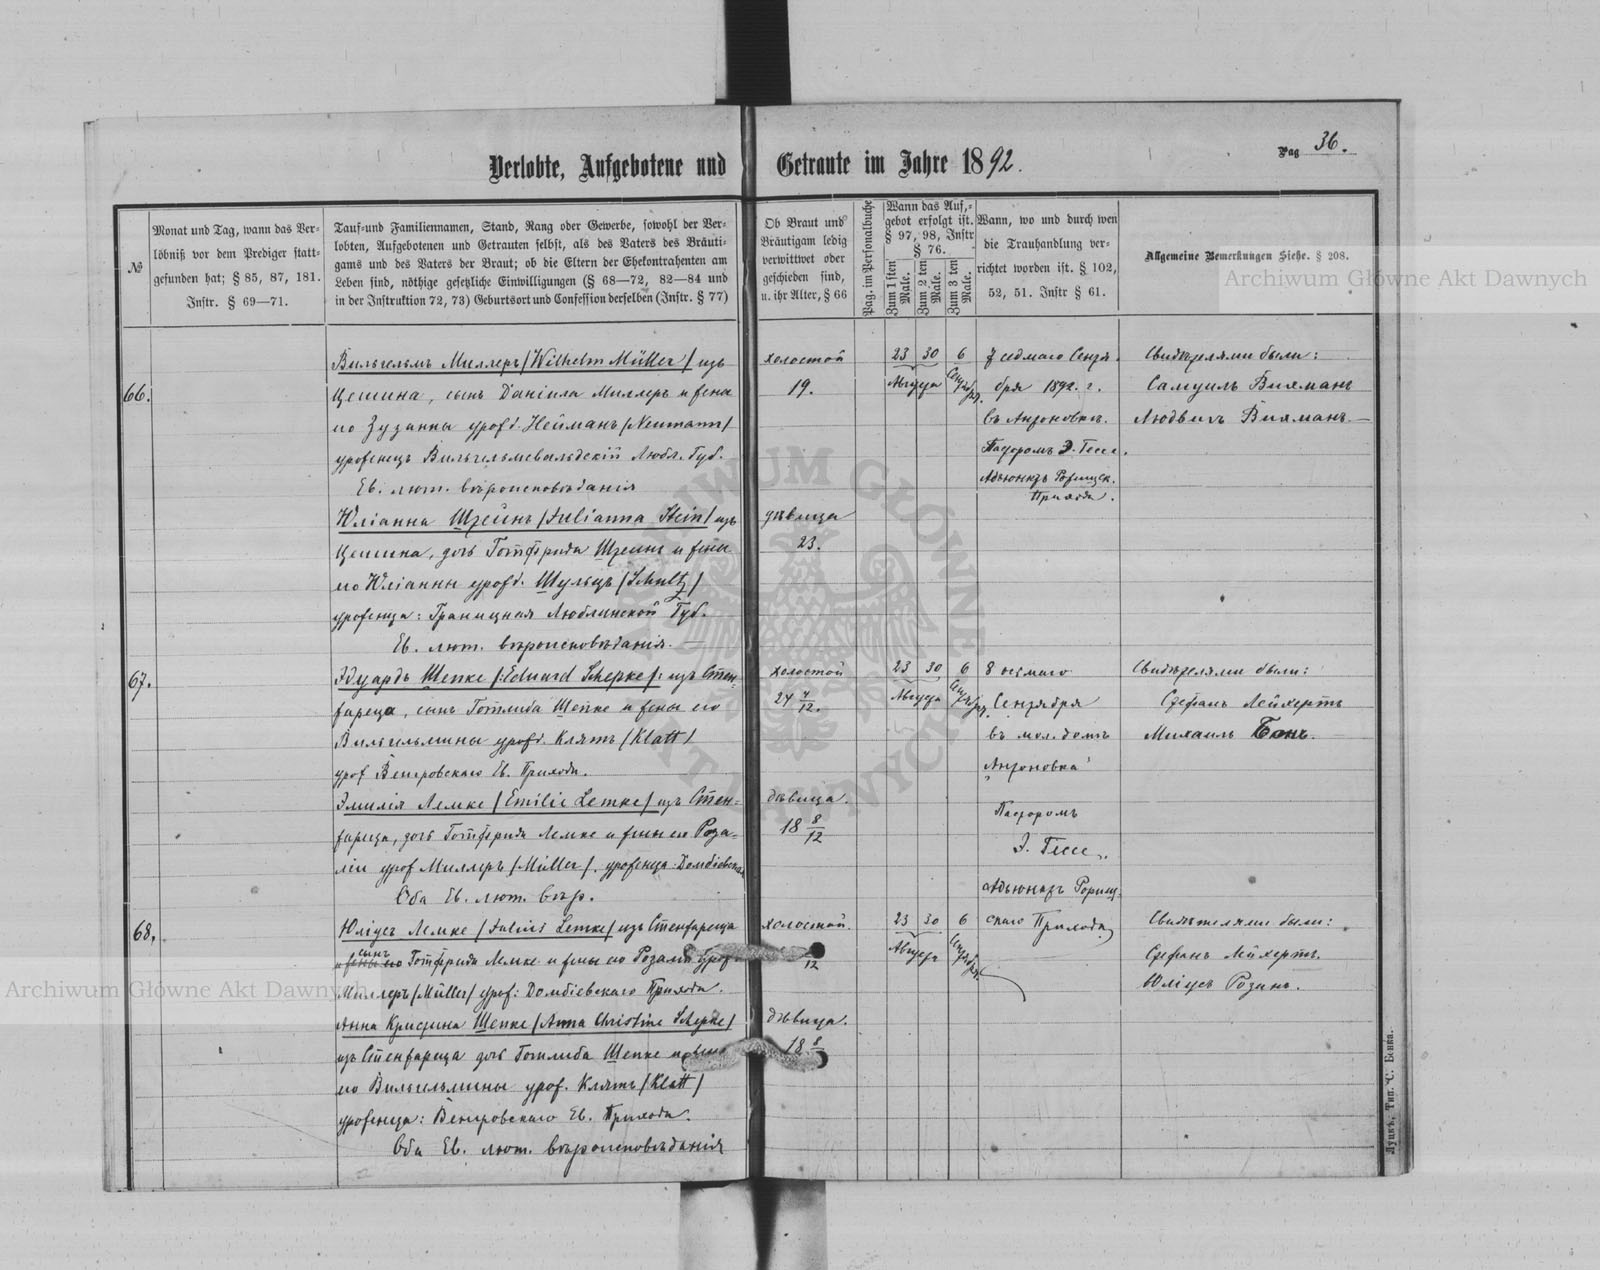 Verlobte, Aufgebotene und Getraute im Jahre 1892.
Pag 36.
№
Monat und Tag, wann das Ver-
löbniß vor dem Prediger statt-
gefunden hat; § 85, 87, 181.
Instr. § 69—71.
Tauf-und Familiennamen, Stand, Rang oder Gewerbe, sowohl der Ver-
lobten, Aufgebotenen und Getrauten selbst, als des Vaters des Bräuti-
gams und des Vaters der Braut; ob die Eltern der Ehekontrahenten am
Leben sind, nöthige gesetzliche Einwilligungen (§ 68—72, 82—84 und
in der Instruktion 72, 73) Geburtsort und Confession derselben (Instr. § 77)
Ob Braut und
Bräutigam ledig
verwittwet oder
geschieden sind,
u. ihr Alter, § 66
Pag. im Personalbuche
Wann das Auf-
gebot erfolgt ist.
§ 97, 98, Instr
§ 76.
Zum 1 sten Male.
Zum 2 ten Male.
Zum 3 ten Male.
Wann, wo und durch wen
die Trauhandlung ver-
richtet worden ist. § 102,
52, 51. Instr § 61.
Allgemeine Bemerkungen Siehe. § 208.
66.
Вильгельмъ Миллеръ /Wilhelm Müller/ изъ
Цешина, сынъ Даніила Миллеръ и жены
его Зузанны урожд. Нейманъ /Neumann/
уроженецъ Вильгельмсвальдскій Любл. Губ.
Ев. лют. вѣроисповѣданія
Юліанна Штейнъ /Julianna Stein/ изъ
Цешина, дочь Готфрида Штейнъ и жены
его Юліанны урожд. Шульцъ /Schultz/
уроженца: Границкая Люблинской Губ.
Ев. лют. вѣроисповѣданія. —
холостой
19.
дѣвица
23.
23 30 6
Августа Сентября.
7 седмаго Сентя-
бря 1892. г.
въ Антоновкѣ.
Пасторомъ Э. Гессе.
Адъюнктъ Рожищ.
Прихода.
Свидѣтелями были:
Самуилъ Викманъ
Людвигъ Викманъ. —
67.
Эдуардъ Шепке /:Eduard Schepke/: изъ Стен-
жарица, сынъ Готлиба Шепке и жены его
Вильгельмины урожд. Клятъ /Klatt/
урож Венгровскаго Ев. Прихода.
Эмилія Лемке /Emilie Lemke/ изъ Стен-
жарица, дочь Готфрида Лемке и жены его Роза-
ліи урож Миллеръ /Müller/. уроженца Домбіевская
Оба Ев. лют. вѣр.
холостой
24 4/12.
дѣвица.
18 8/12
23 30 6
Августа Сентября.
8 осмаго
Сентября
въ мол. домѣ
Антоновка
Пасторомъ
Э. Гессе.
Адъюнктъ Рожищ-
скаго Прихода
Свидѣтелями были:
Стефанъ Лейхертъ
Михаилъ Бонъ.
68.
Юліусъ Лемке /Julius Lemke/ изъ Стенжарица
сынъ
и жены его Готфрида Лемке и жены его Розаліи урож
Миллеръ /Müller/ урож: Домбіевскаго Прихода.
Анна Кристина Шепке /Anna Christine Schepke/
изъ Стенжарица дочь Готлиба Шепке и жены
его Вильгельмины урож. Клятъ /Klatt/
уроженца: Венгровскаго Ев. Прихода.
Оба Ев. лют. вѣроисповѣданія
холостой.
12
дѣвица.
18 8
23 30 6
Августа Сентября.
Свидѣтелями были:
Стефанъ Лейхертъ.
Юліусъ Розинъ.
Луцкъ, Тип. С. Бенка.
Archiwum Główne Akt Dawnych
Archiwum Główne Akt Dawnych